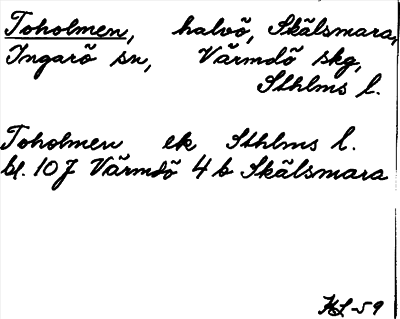 Toholmen, halvö, Skälsmara,
Ingarö sn, Värmdö skg,
Sthlms l.
Toholmen ek Sthlms l.
bl. 10J Värmdö 4 b Skälsmara
HL-59